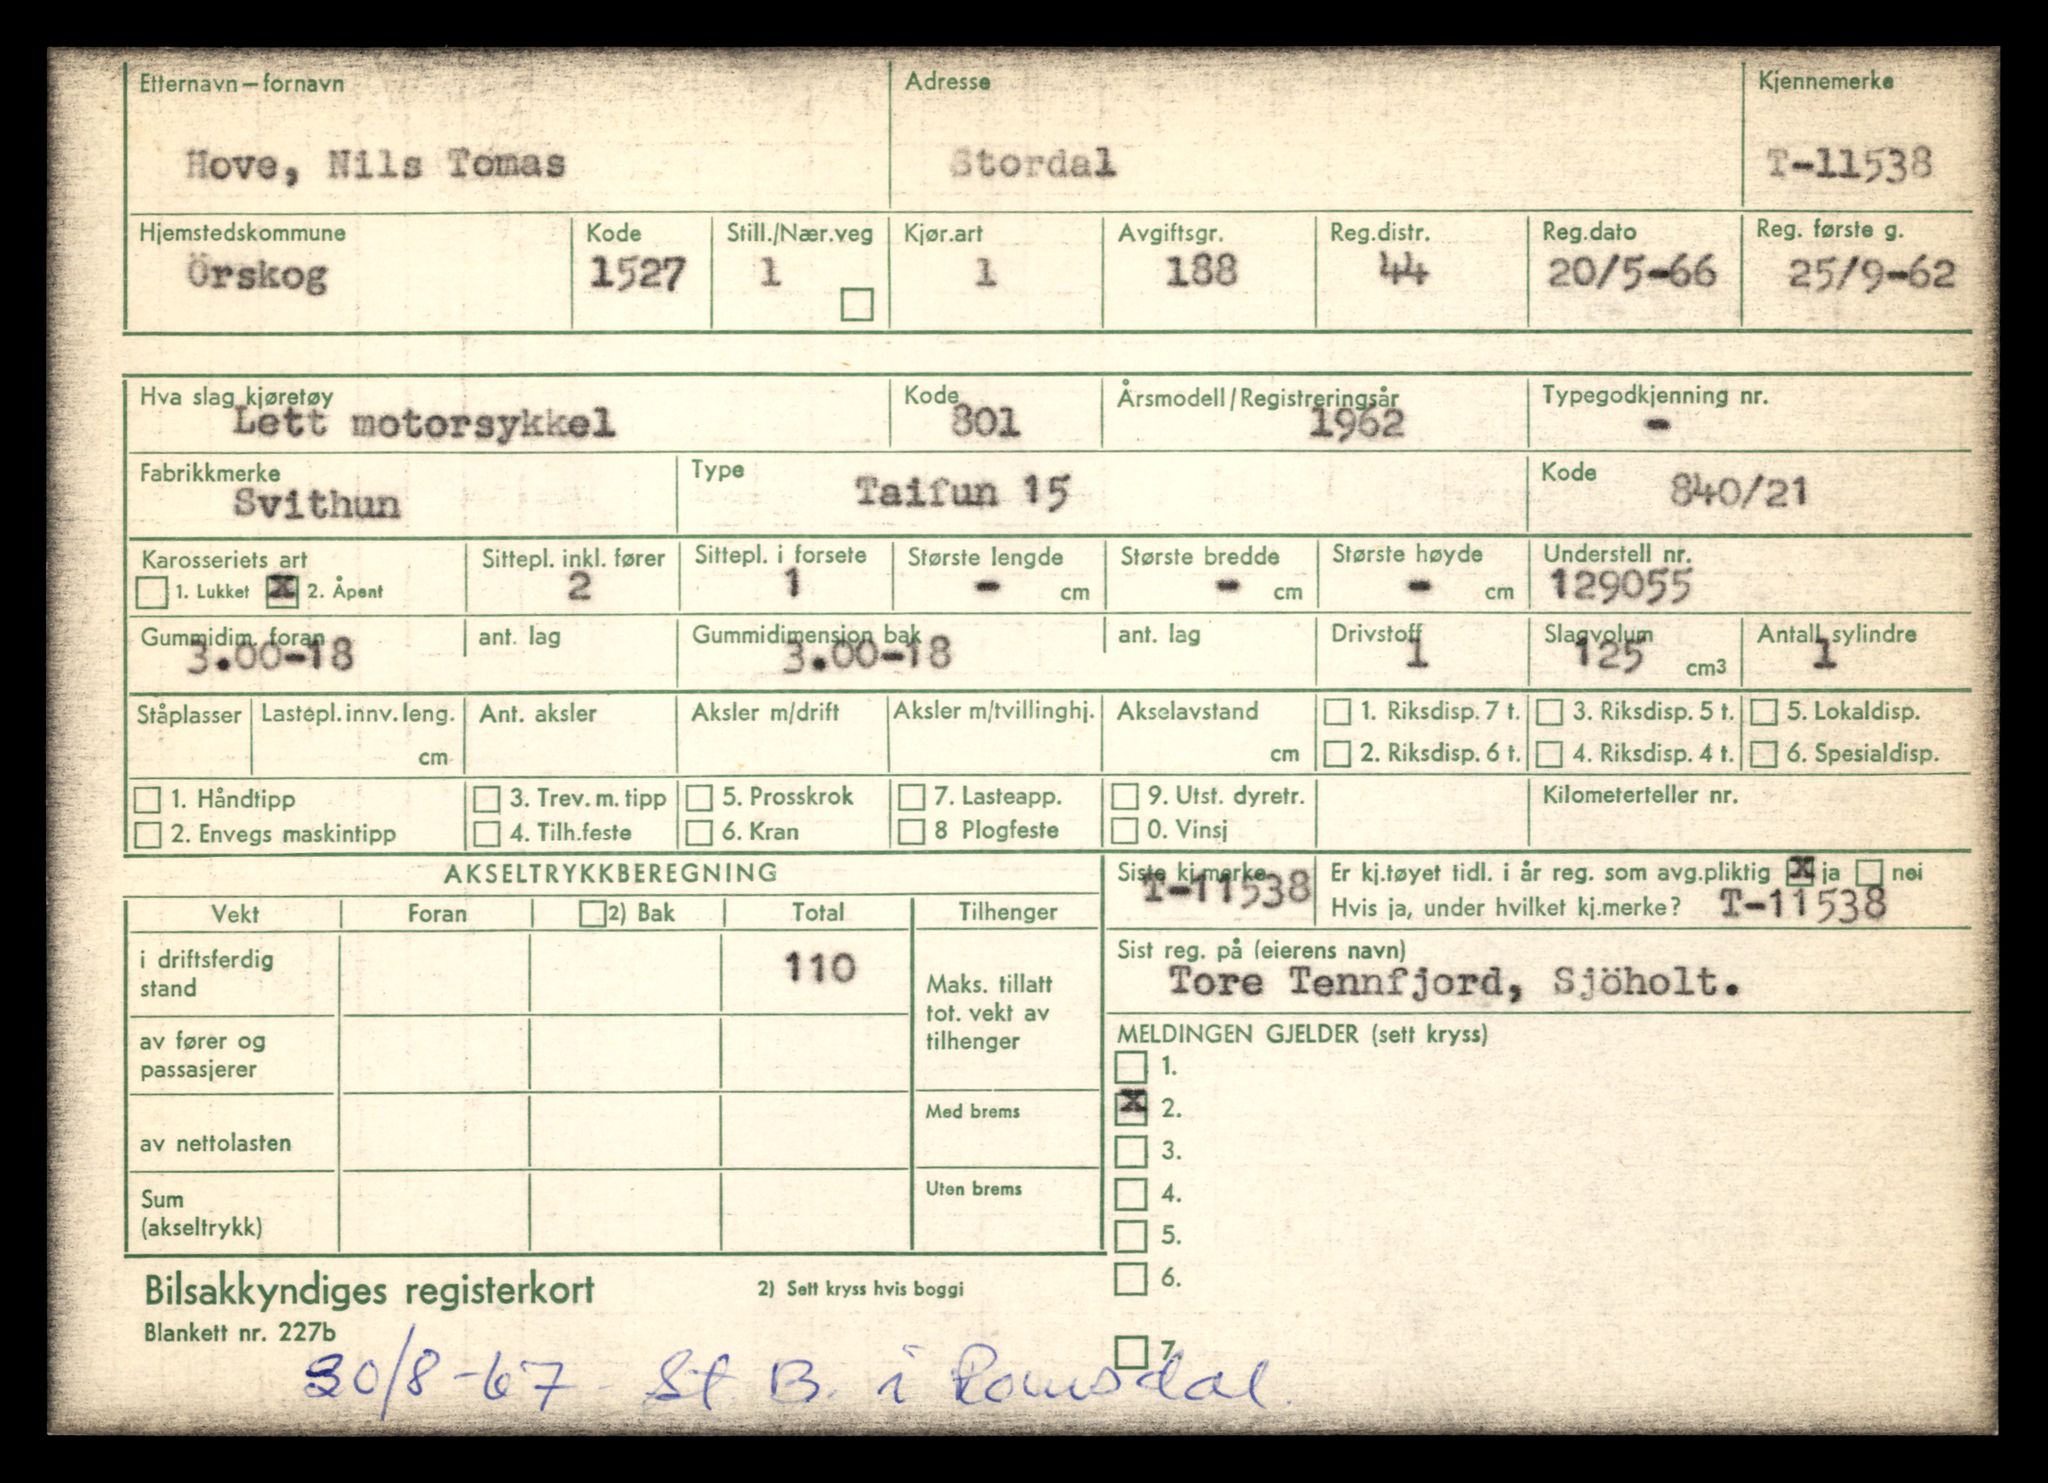 Etternavn – fornavn Adresse Kjennemerke
Hove, Nils Tomas Stordal T-11538
Hjemstedskommune Kode Still./Nær.veg Kjør.art Avgiftsgr. Reg.distr. Reg.dato Reg. første g.
Örskog 1527 1 1 188 44 20/5-66 25/9-62
Hva slag kjøretøy Kode Årsmodell/Registreringsår Typegodkjenning nr.
Lett motorsykkel 801 1962 -
Fabrikkmerke Type Kode
Svithun Taifun 15 840/21
Karosseriets art Sittepl. inkl. fører Sittepl. i forsete Største lengde Største bredde Største høyde Understell nr.
1. Lukket X 2. Åpent 2 1 - cm - cm - cm 129055
Gummidim. foran ant. lag Gummidimension bak ant. lag Drivstoff Slagvolum Antall sylindre
3.00-18 3.00-18 1 125 cm3 1
Ståplasser Lastepl. innv. leng. Ant. aksler Aksler m/drift Aksler m/tvillinghj. Akselavstand 1. Riksdisp. 7 t. 3. Riksdisp. 5 t. 5. Lokaldisp.
cm cm 2. Riksdisp. 6 t. 4. Riksdisp. 4 t. 6. Spesialdisp.
1. Håndtipp 3. Trev. m. tipp 5. Prosskrok 7. Lasteapp. 9. Utst. dyretr. Kilometerteller nr.
2. Envegs maskintipp 4. Tilh.feste 6. Kran 8 Plogfeste 0. Vinsj
AKSELTRYKKBEREGNING Siste kj.merke Er kj.tøyet tidl. i år reg. som avg.pliktig X ja nei
T-11538 Hvis ja, under hvilket kj.merke? T-11538
Vekt Foran 2) Bak Total Tilhenger
i driftsferdig stand 110
Sist reg. på (eierens navn)
Tore Tennfjord, Sjöholt.
Maks. tillatt
tot. vekt av
tilhenger
av fører og
passasjerer
MELDINGEN GJELDER (sett kryss)
1.
X 2.
Med brems
av nettolasten
3.
4.
Uten brems
Sum
(akseltrykk)
5.
6.
Bilsakkyndiges registerkort 2) Sett kryss hvis boggi
Blankett nr. 227b
7.
30/8-67 - St. B. i Romsdal.